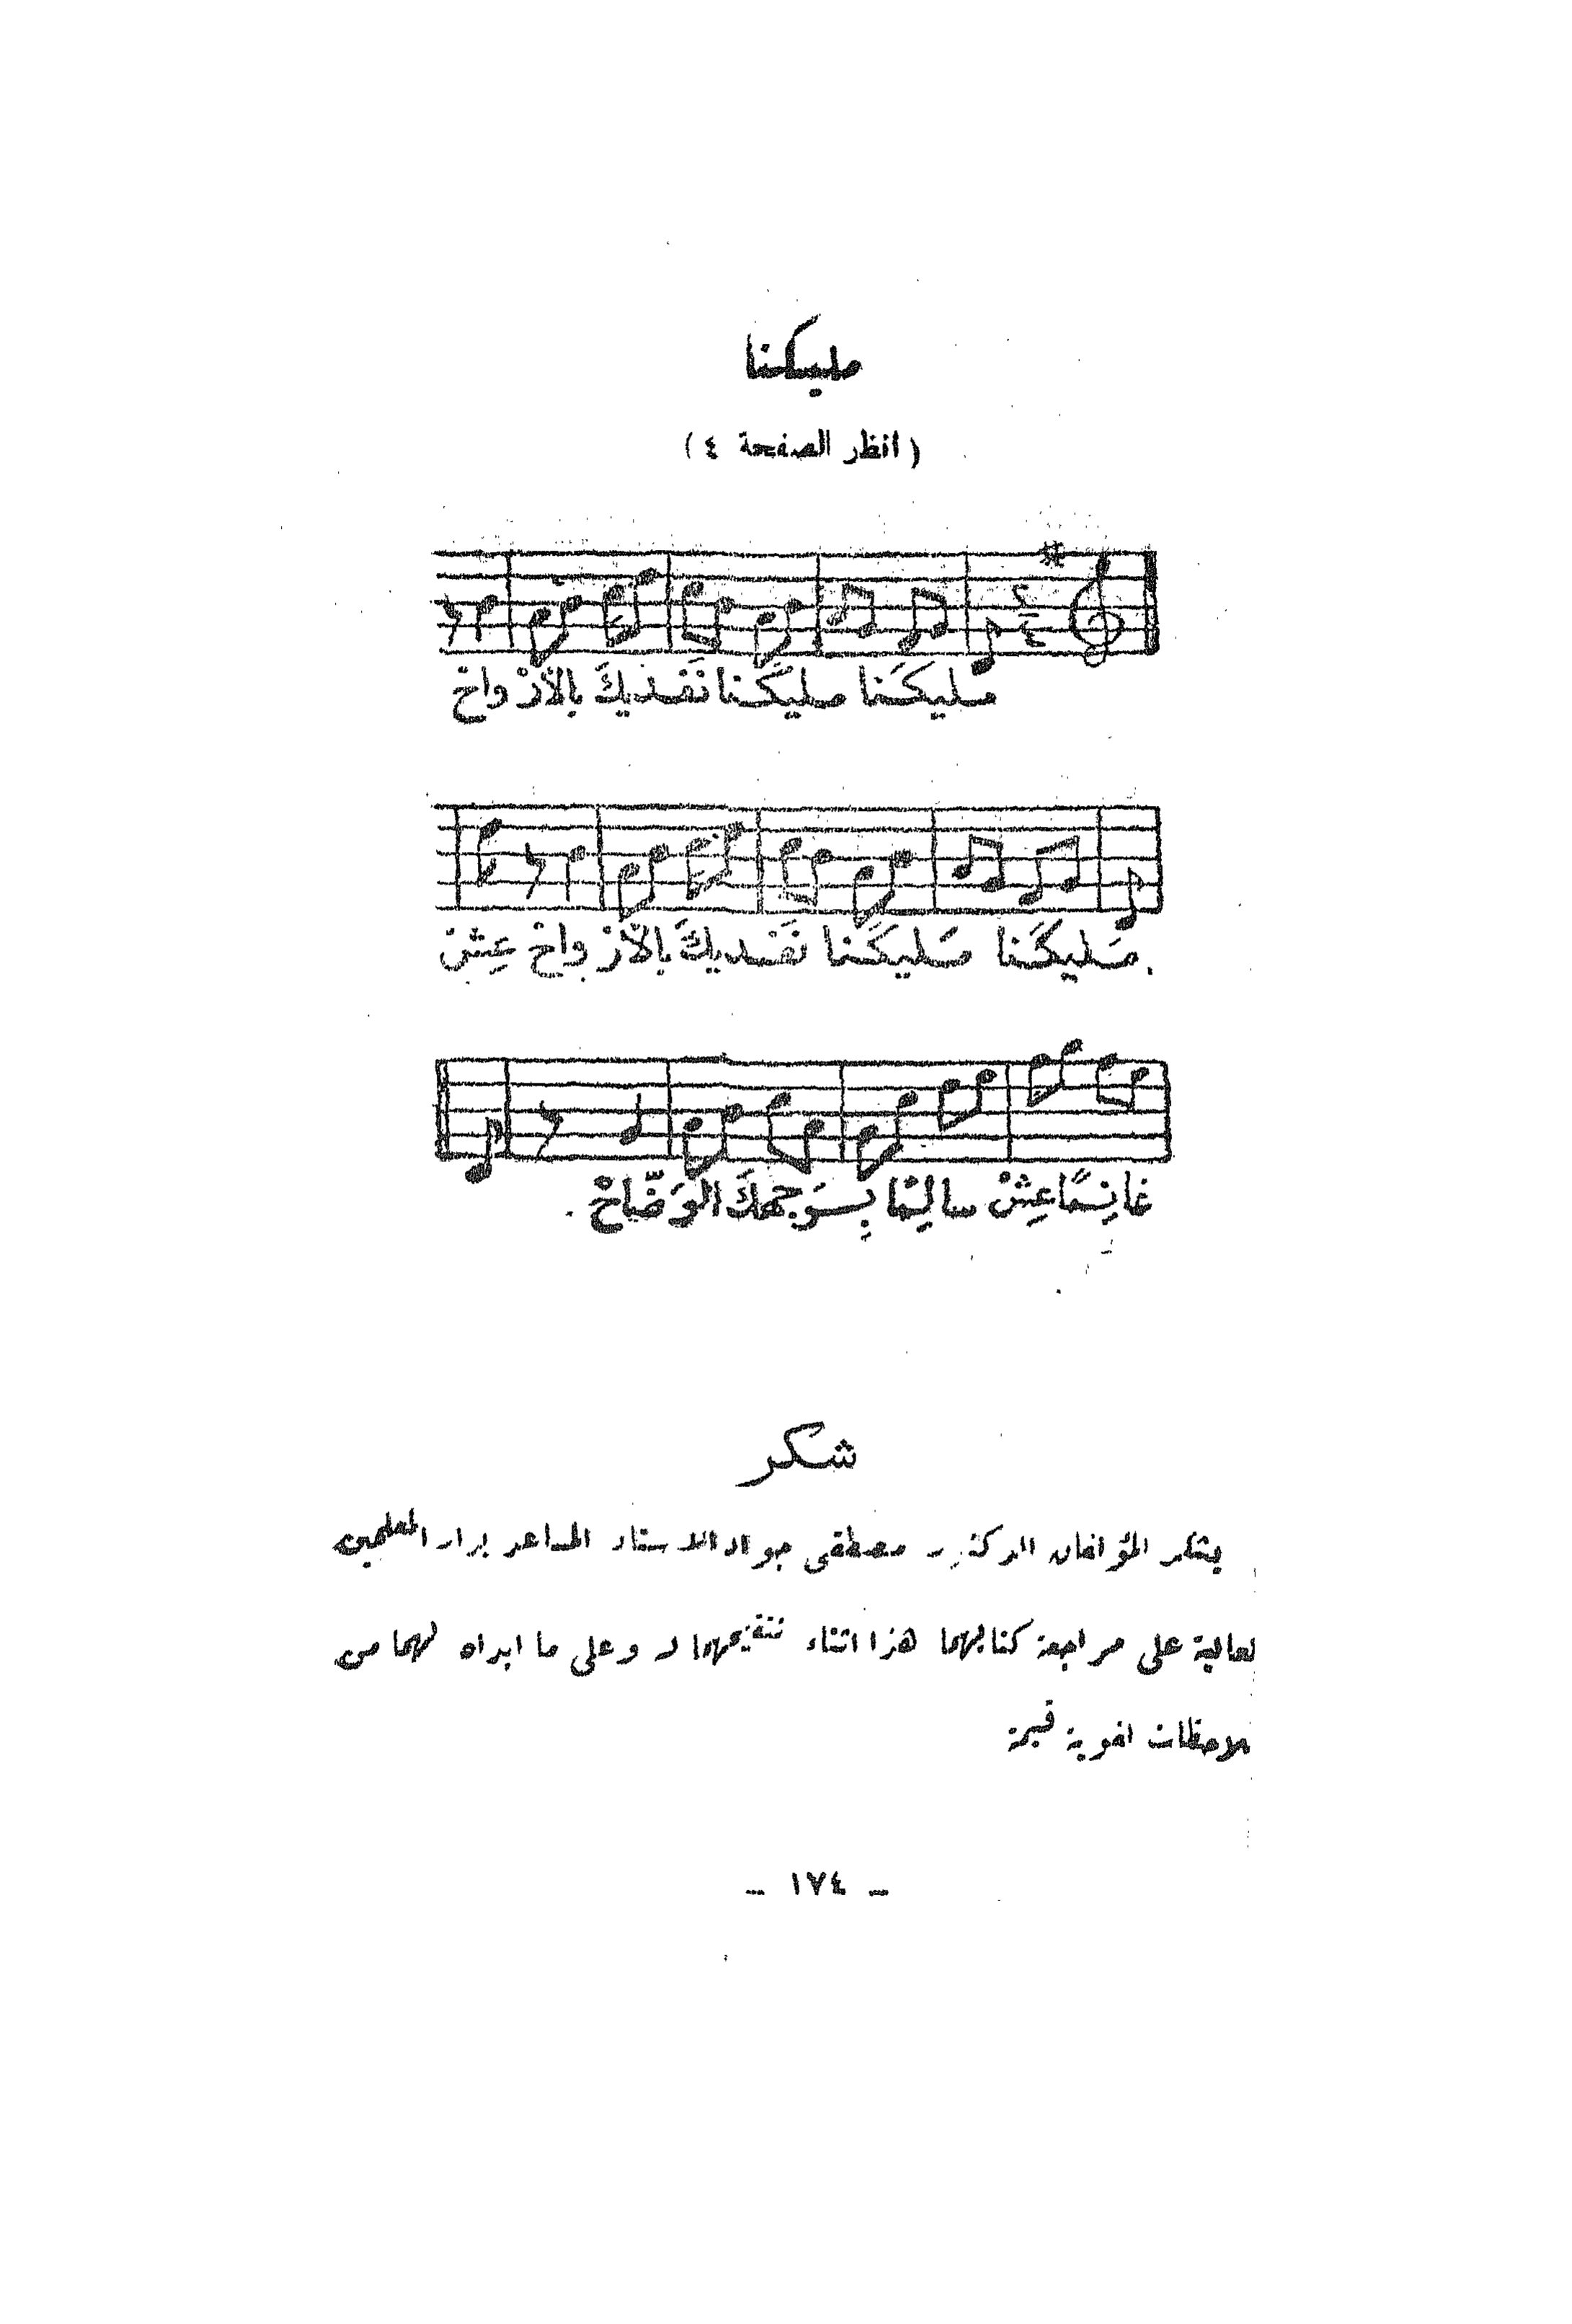 مليكنا
( انظر الصفحة ٤ )
مليكَنا مليكَنا نَفْديكَ بالأرْواحْ
مَليكَنا مَليكَنا نَفْديكَ بالأرْواحْ عِشْ
غانِمًا عِشْ سالِمًا بِوَجهِكَ الوَضّاحْ .
شكر
يشكر المؤلفان الدكتور مصطفى جواد الاستاذ المساعد بدار المعلمين
لعالية على مراجعة كتابهما هذا اثناء تنقيحهما له وعلى ما ابداه لهما من
ملاحظات لغوية قيمة
– ١٧٤ –